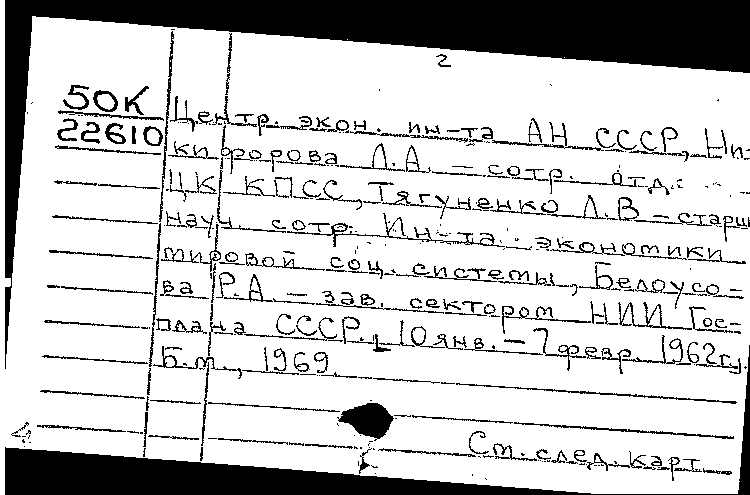 2
50К
22610
Центр. экон. ин-та АН СССР, Ни-
кифорова Л.А. – сотр. отд.
ЦК КПСС, Тягуненко Л.В – старш
науч. сотр. Ин-та экономики
мировой соц. системы, Белоусо-
ва Р.А. – зав. сектором НИИ Гос-
плана СССР. 10 янв. – 7 февр. 1962г.
Б.м., 1969.
См. след. карт
4